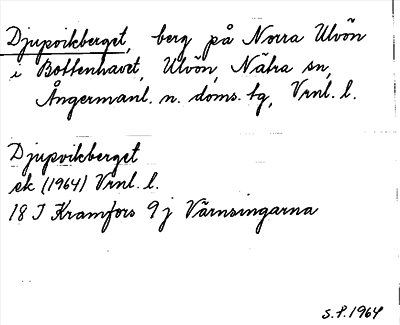 Djupvikberget, berg på Norra Ulvön
i Bottenhavet, Ulvön, Nätra sn,
Ångermanl. n. doms. tg, Vrnl. l.
Djupvikberget
ek (1964) Vrnl. l.
18 I Kramfors 9 j Värnsingarna
S.F. 1964